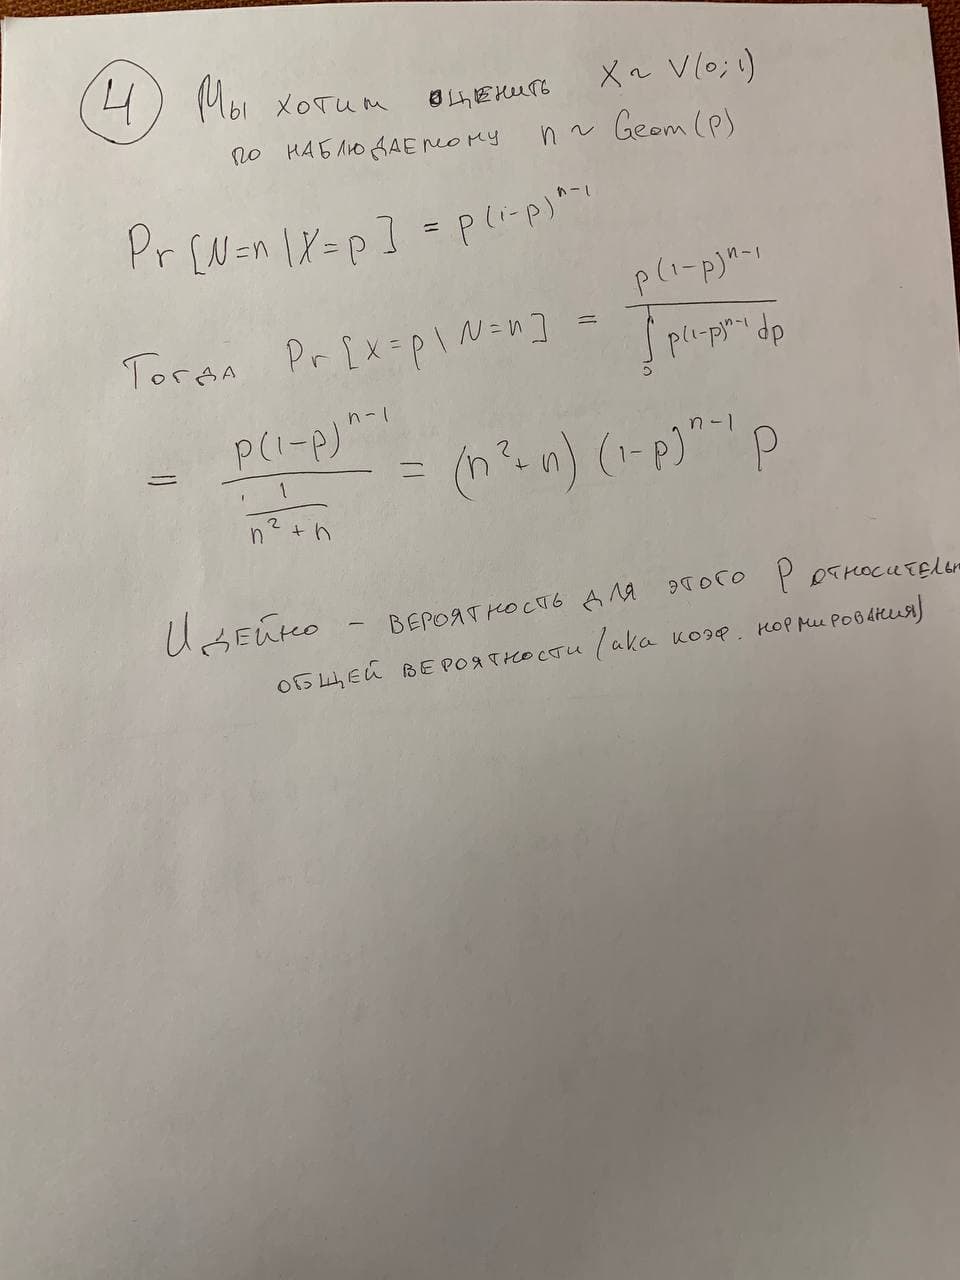 4 Мы хотим оценить X ~ U(0;1)
по наблюдаемому n ~ Geom(p)
Pr[N=n|X=p] = p(1-p)^{n-1}
Тогда Pr[X=p|N=n] = \frac{p(1-p)^{n-1}}{\int_0^1 p(1-p)^{n-1} dp}
= \frac{p(1-p)^{n-1}}{\frac{1}{n^2+n}} = (n^2+n)(1-p)^{n-1} p
Идейно - вероятность для этого p относительн
общей вероятности (aka коэф. нормирования)